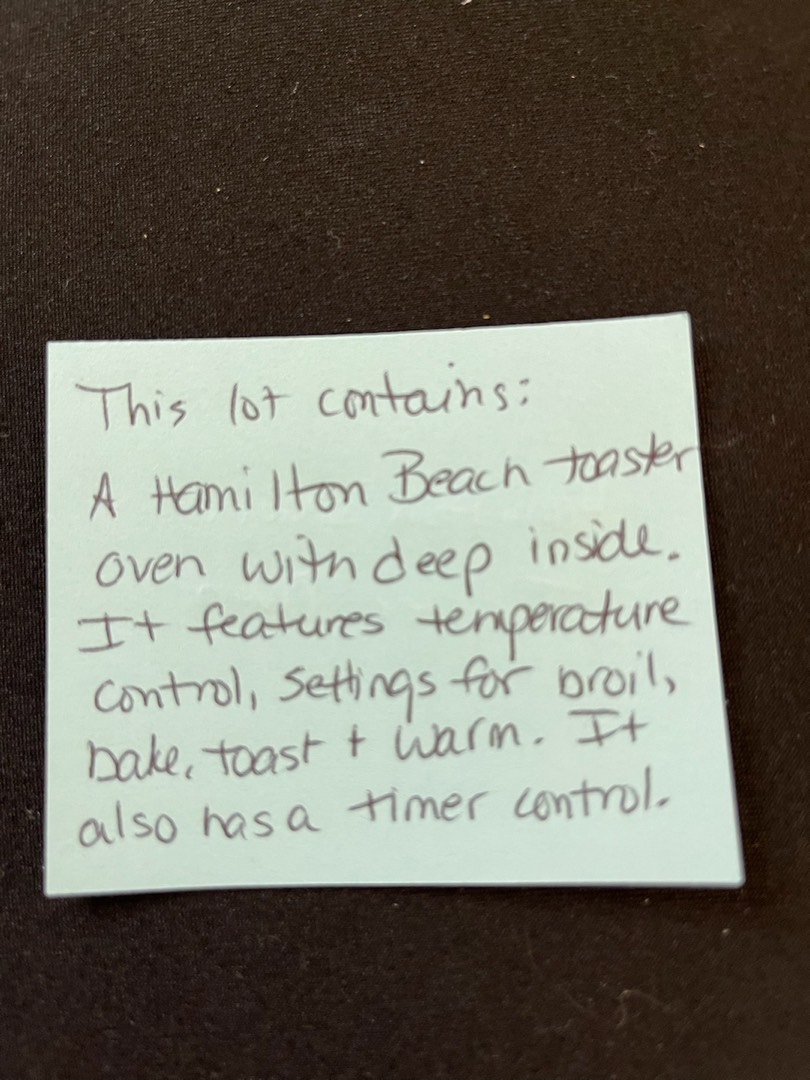 This lot contains:
A Hamilton Beach toaster
oven with deep inside.
It features temperature
control, settings for broil,
bake, toast + warm. It
also has a timer control.